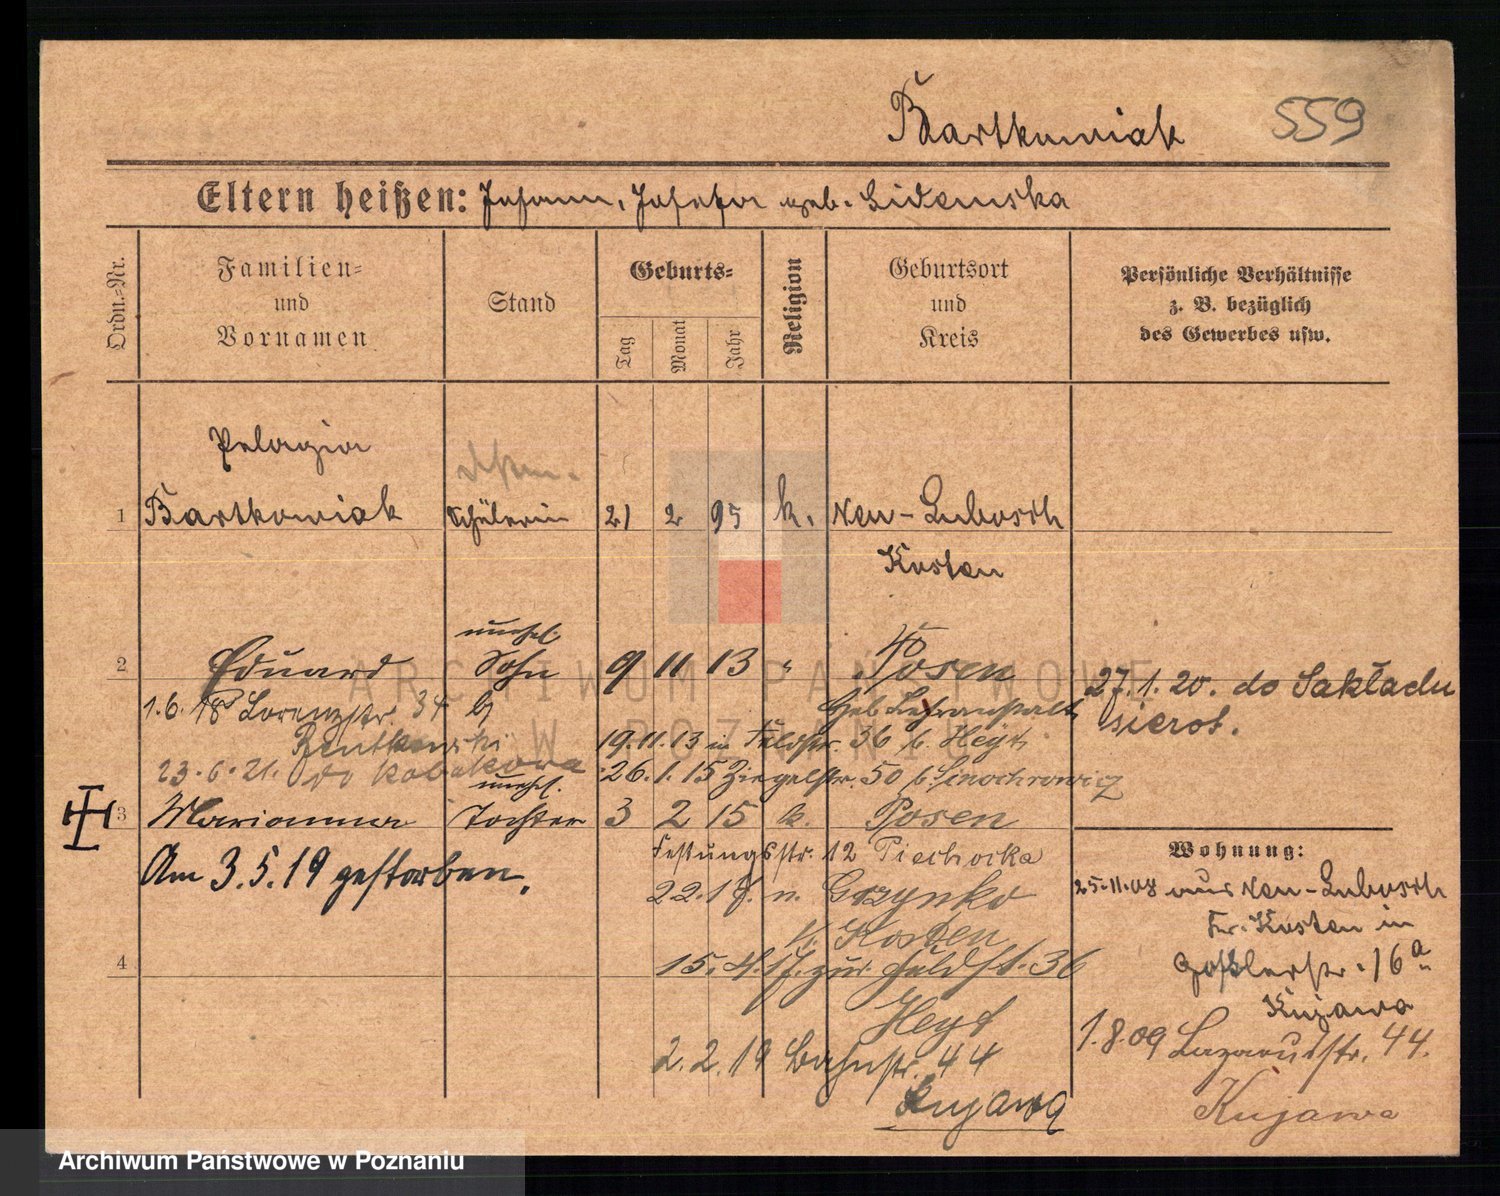 Bartkowiak 559
Eltern heißen: Johann, Josefa geb. Lidemska
Ordn.-Nr.
Familien-
und
Vornamen
Stand
Geburts-
Tag
Monat
Jahr
Religion
Geburtsort
und
Kreis
Persönliche Verhältnisse
z. B. bezüglich
des Gewerbes usw.
Pelagia
1 Bartkowiak Schülerin 21 2 95 k. Neu-Lubosch
Kosten
unehel.
2 Eduard Sohn 9 11 13 " Posen
27.1.20. do Sakładu
sierot.
1.6.18 Lorenzstr. 34 b/ Geb. Lehranstalt
19.11.13 in Feldstr. 36 b. Heyt
23.6.21. do 26.1.15 Ziegelstr. 50 b.
unehel.
3 Marianna Tochter 3 2 15 k. Posen
Am 3.5.19 gestorben.
Festungsstr. 12 Piechocka
22.17. n. Gozynko
k. Kosten
4 15.4.17. zur. Feldst. 36
Heyt
2.2.19 Bahnstr. 44
Kujawa
Wohnung:
25.11.08 aus Neu-Lubosch
Kr. Kosten in
Goßlerstr. 16a
Kujawa
1.8.09 Lazarusstr. 44.
Kujawa
ARCHIWUM PAŃSTWOWE
W POZNANIU
Archiwum Państwowe w Poznaniu